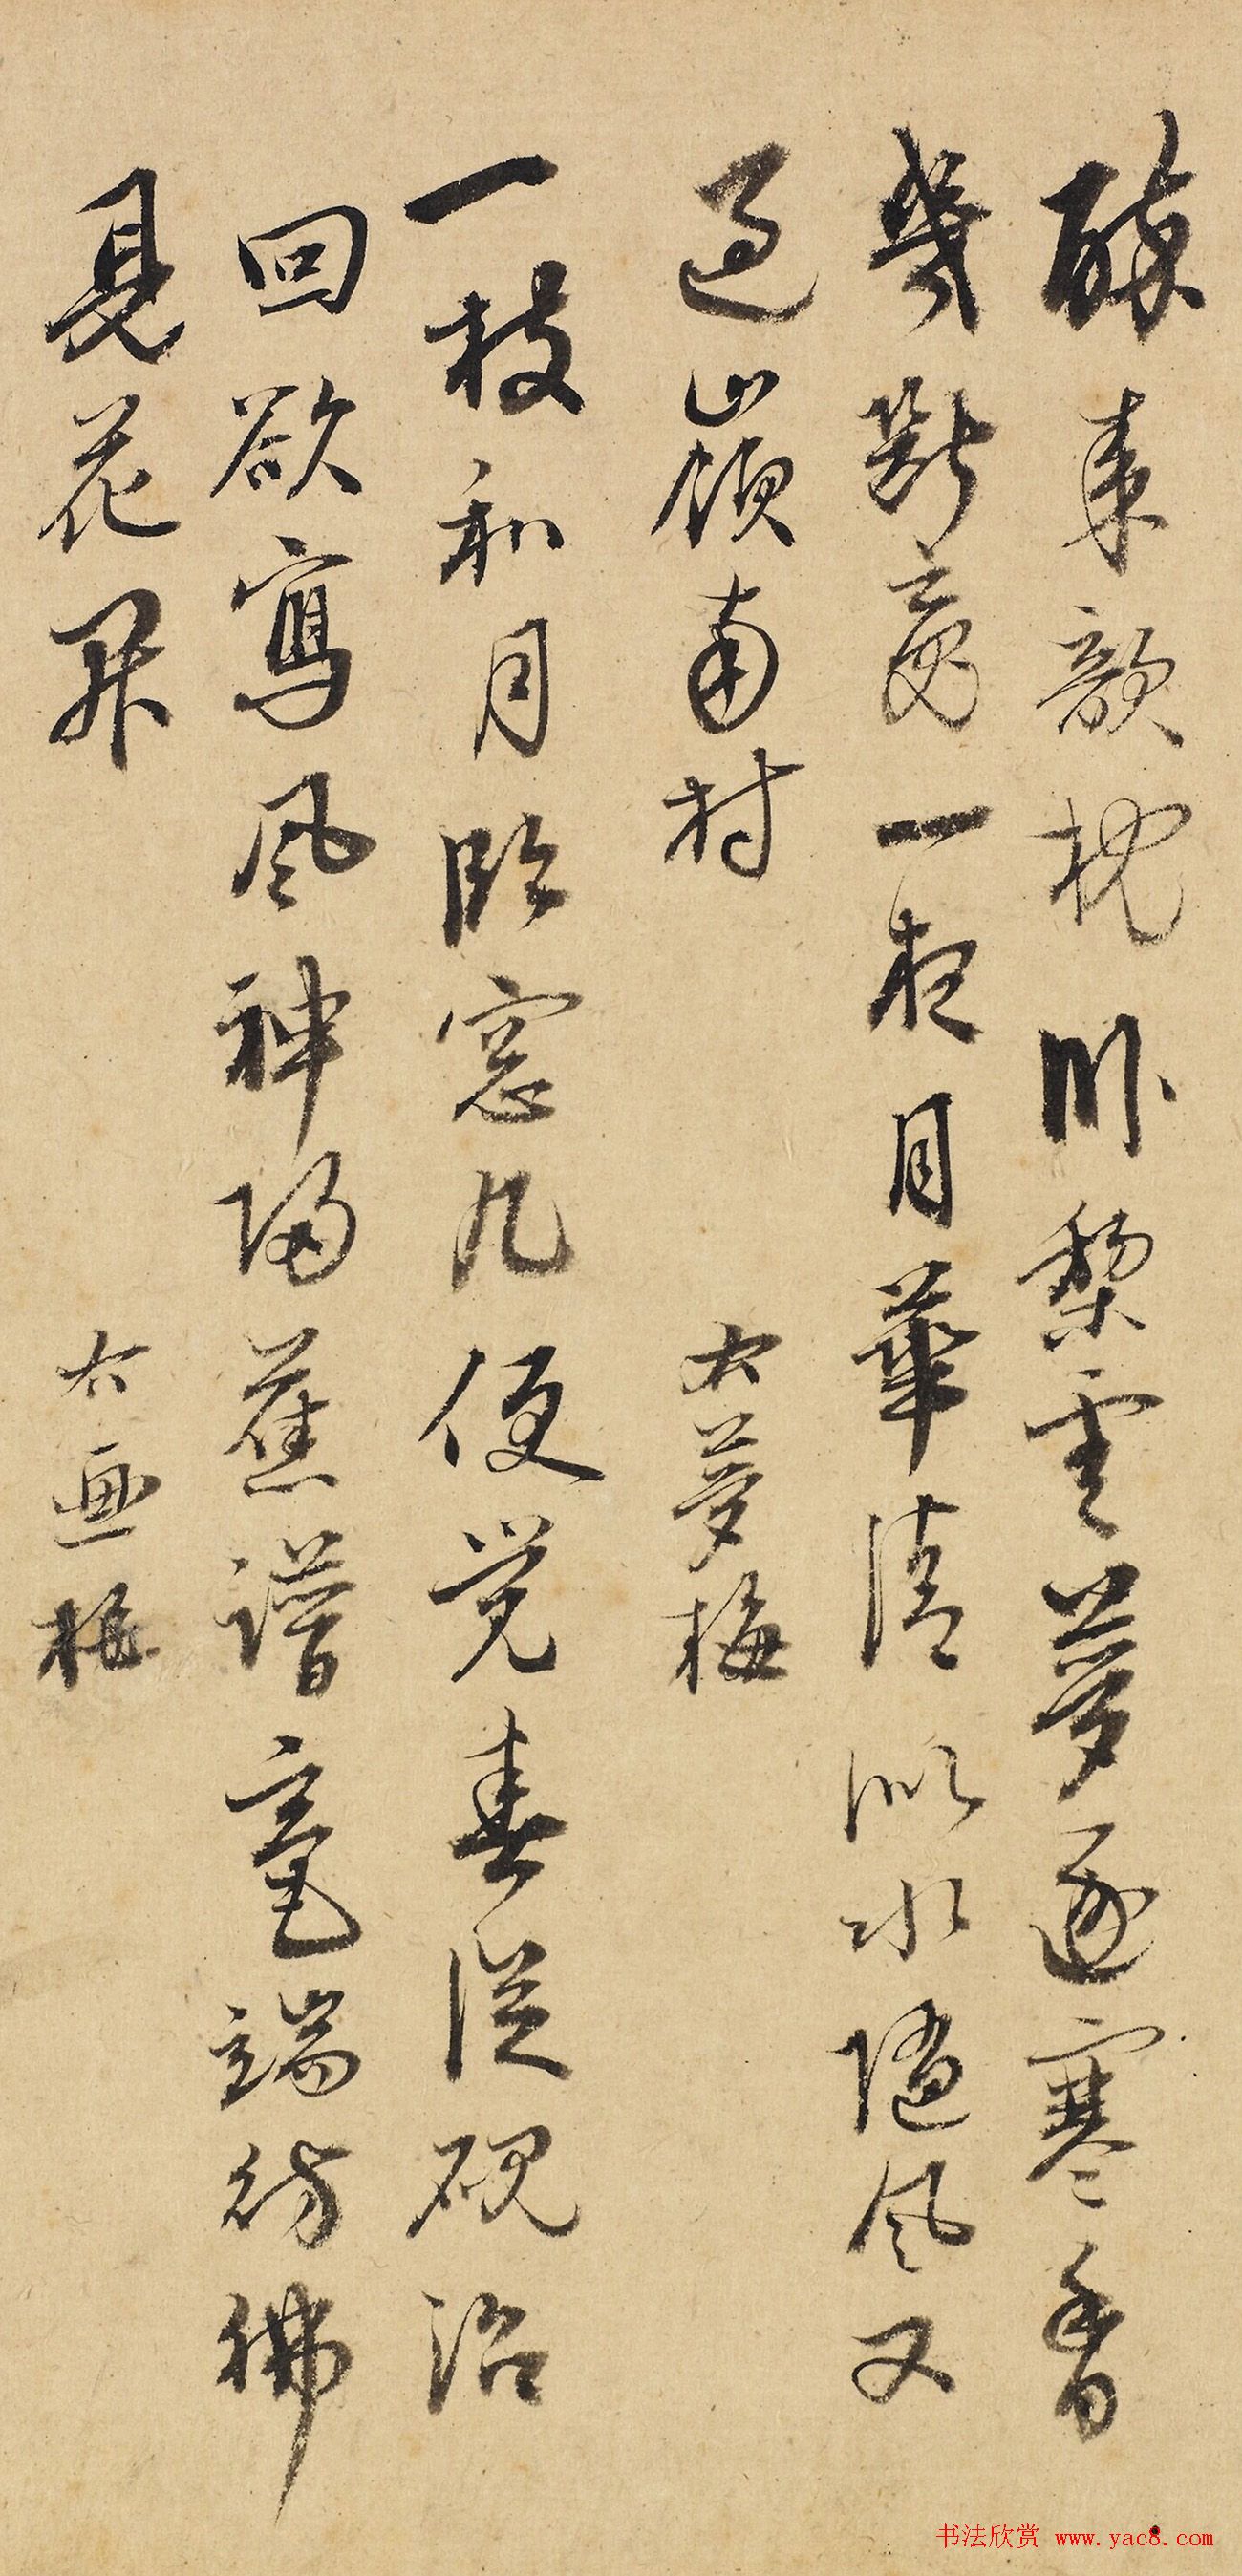 醉来欹枕臥梨雲夢逐寒香
幾斷魂一夜月華清似水隨風又
過嶺南村
右夢梅
一枝和月臨窓几便覺春從硯沼
回欲寫風神歸舊譜毫端彷彿
見花開
右画梅
书法欣赏 www.yac8.com